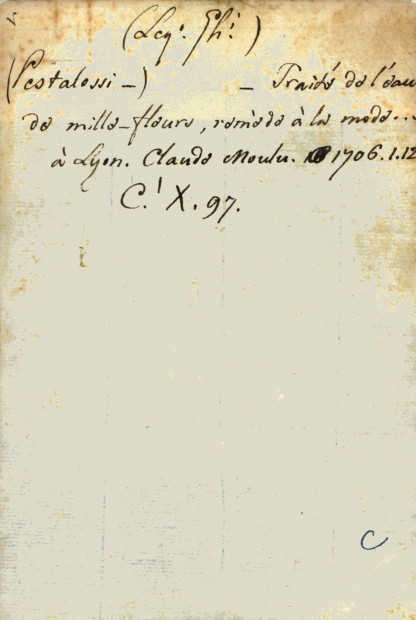 (Leg.! Ph.!)
(Pestalossi -) - Traité de l'éau
de mille-fleurs, remède à la mode...
à Lyon. Claude Moulu. 1706. 1. 12
C.! X. 97.
C